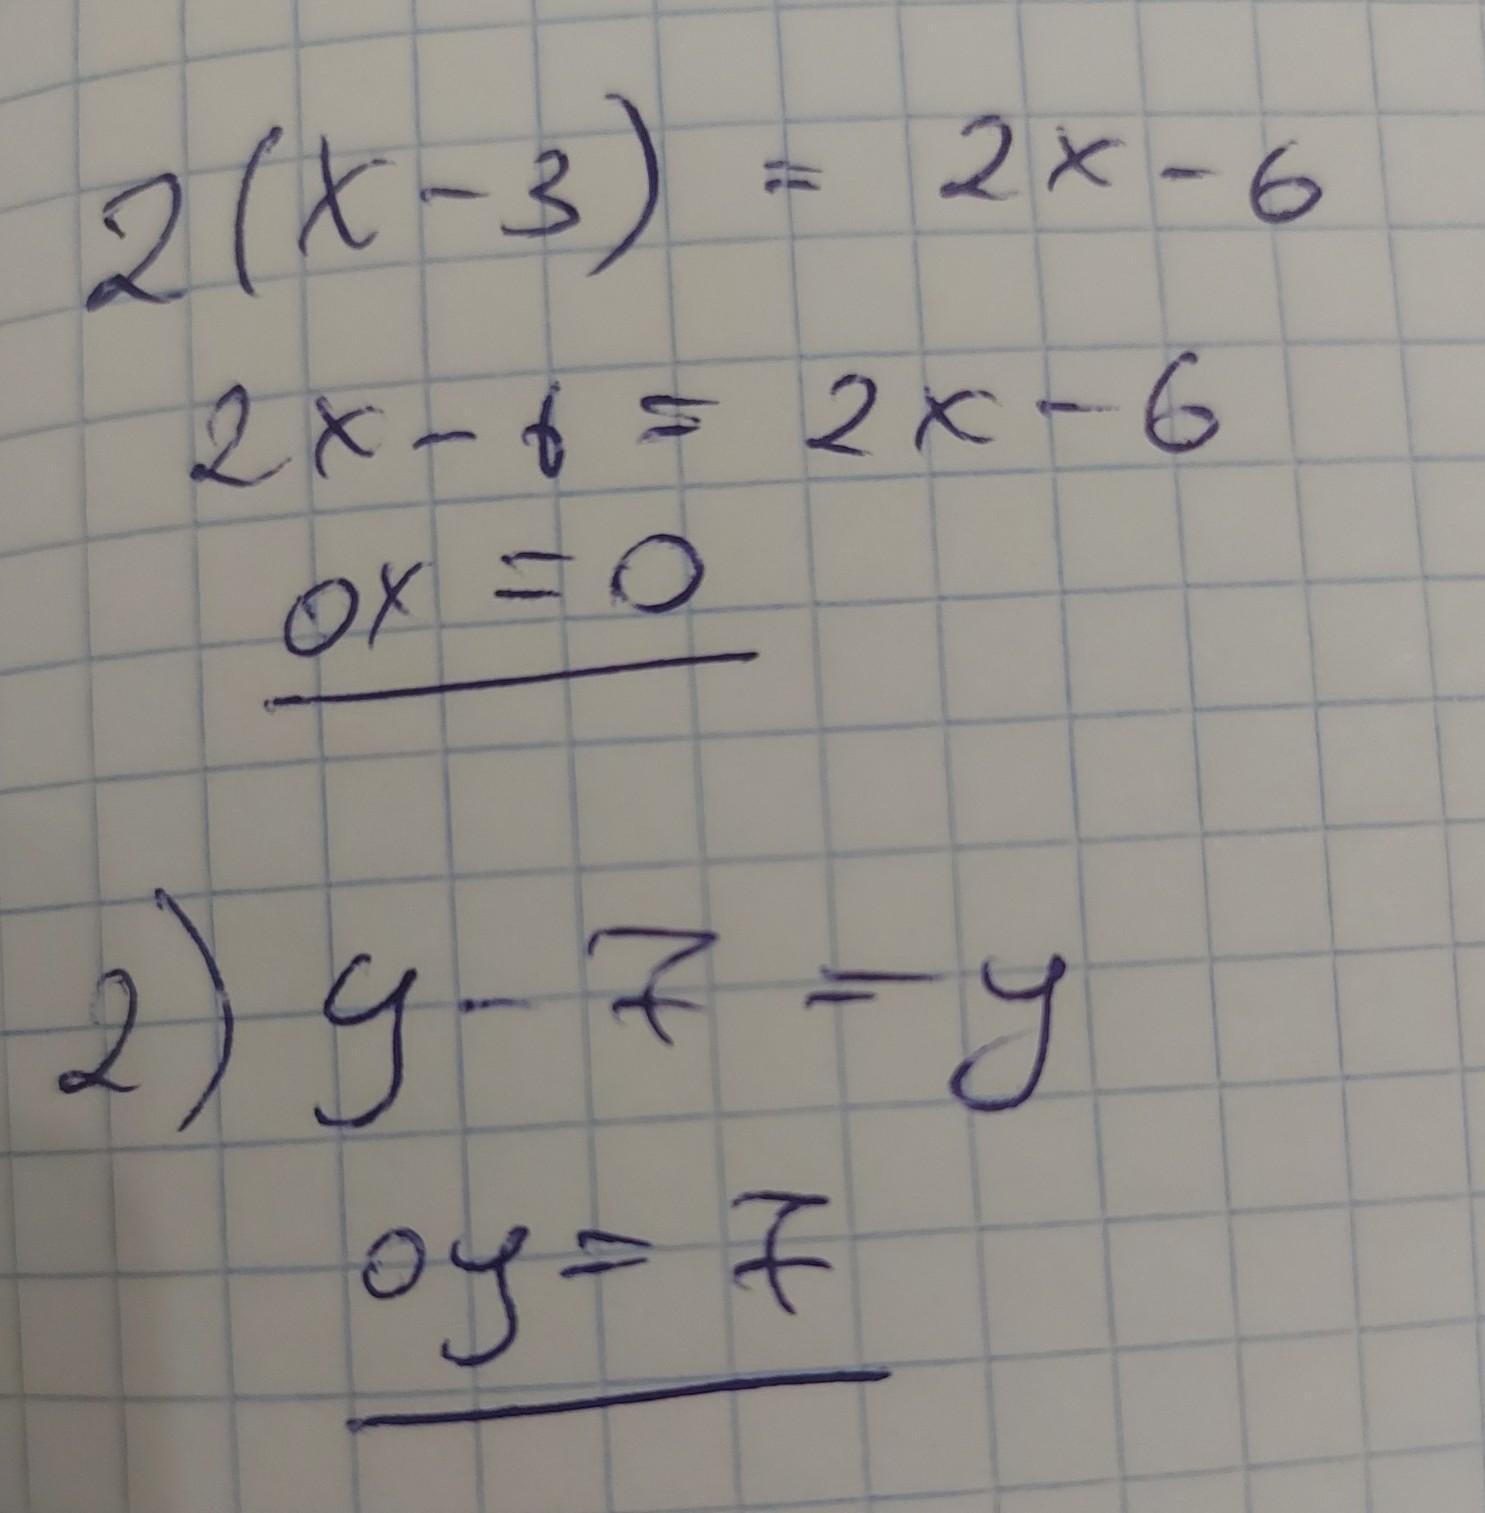 2(x-3) = 2x-6
2x-6 = 2x-6
0x = 0
2) y-7 = y
0y = 7